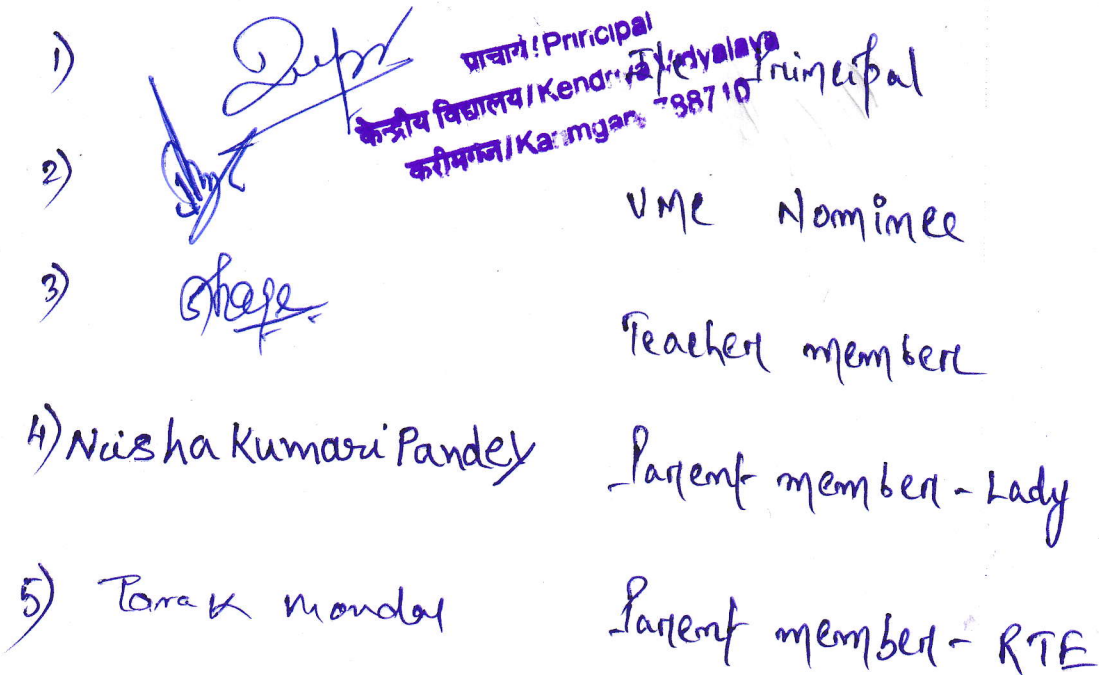 1) The Principal
प्राचार्य/Principal
केन्द्रीय विद्यालय/Kendriya Vidyalaya
करीमगंज/Karimganj 788710
2) VMC Nominee
3) Teacher member
4) Nisha Kumari Pandey Parent member - Lady
5) Tarak Mondal Parent member - RTE